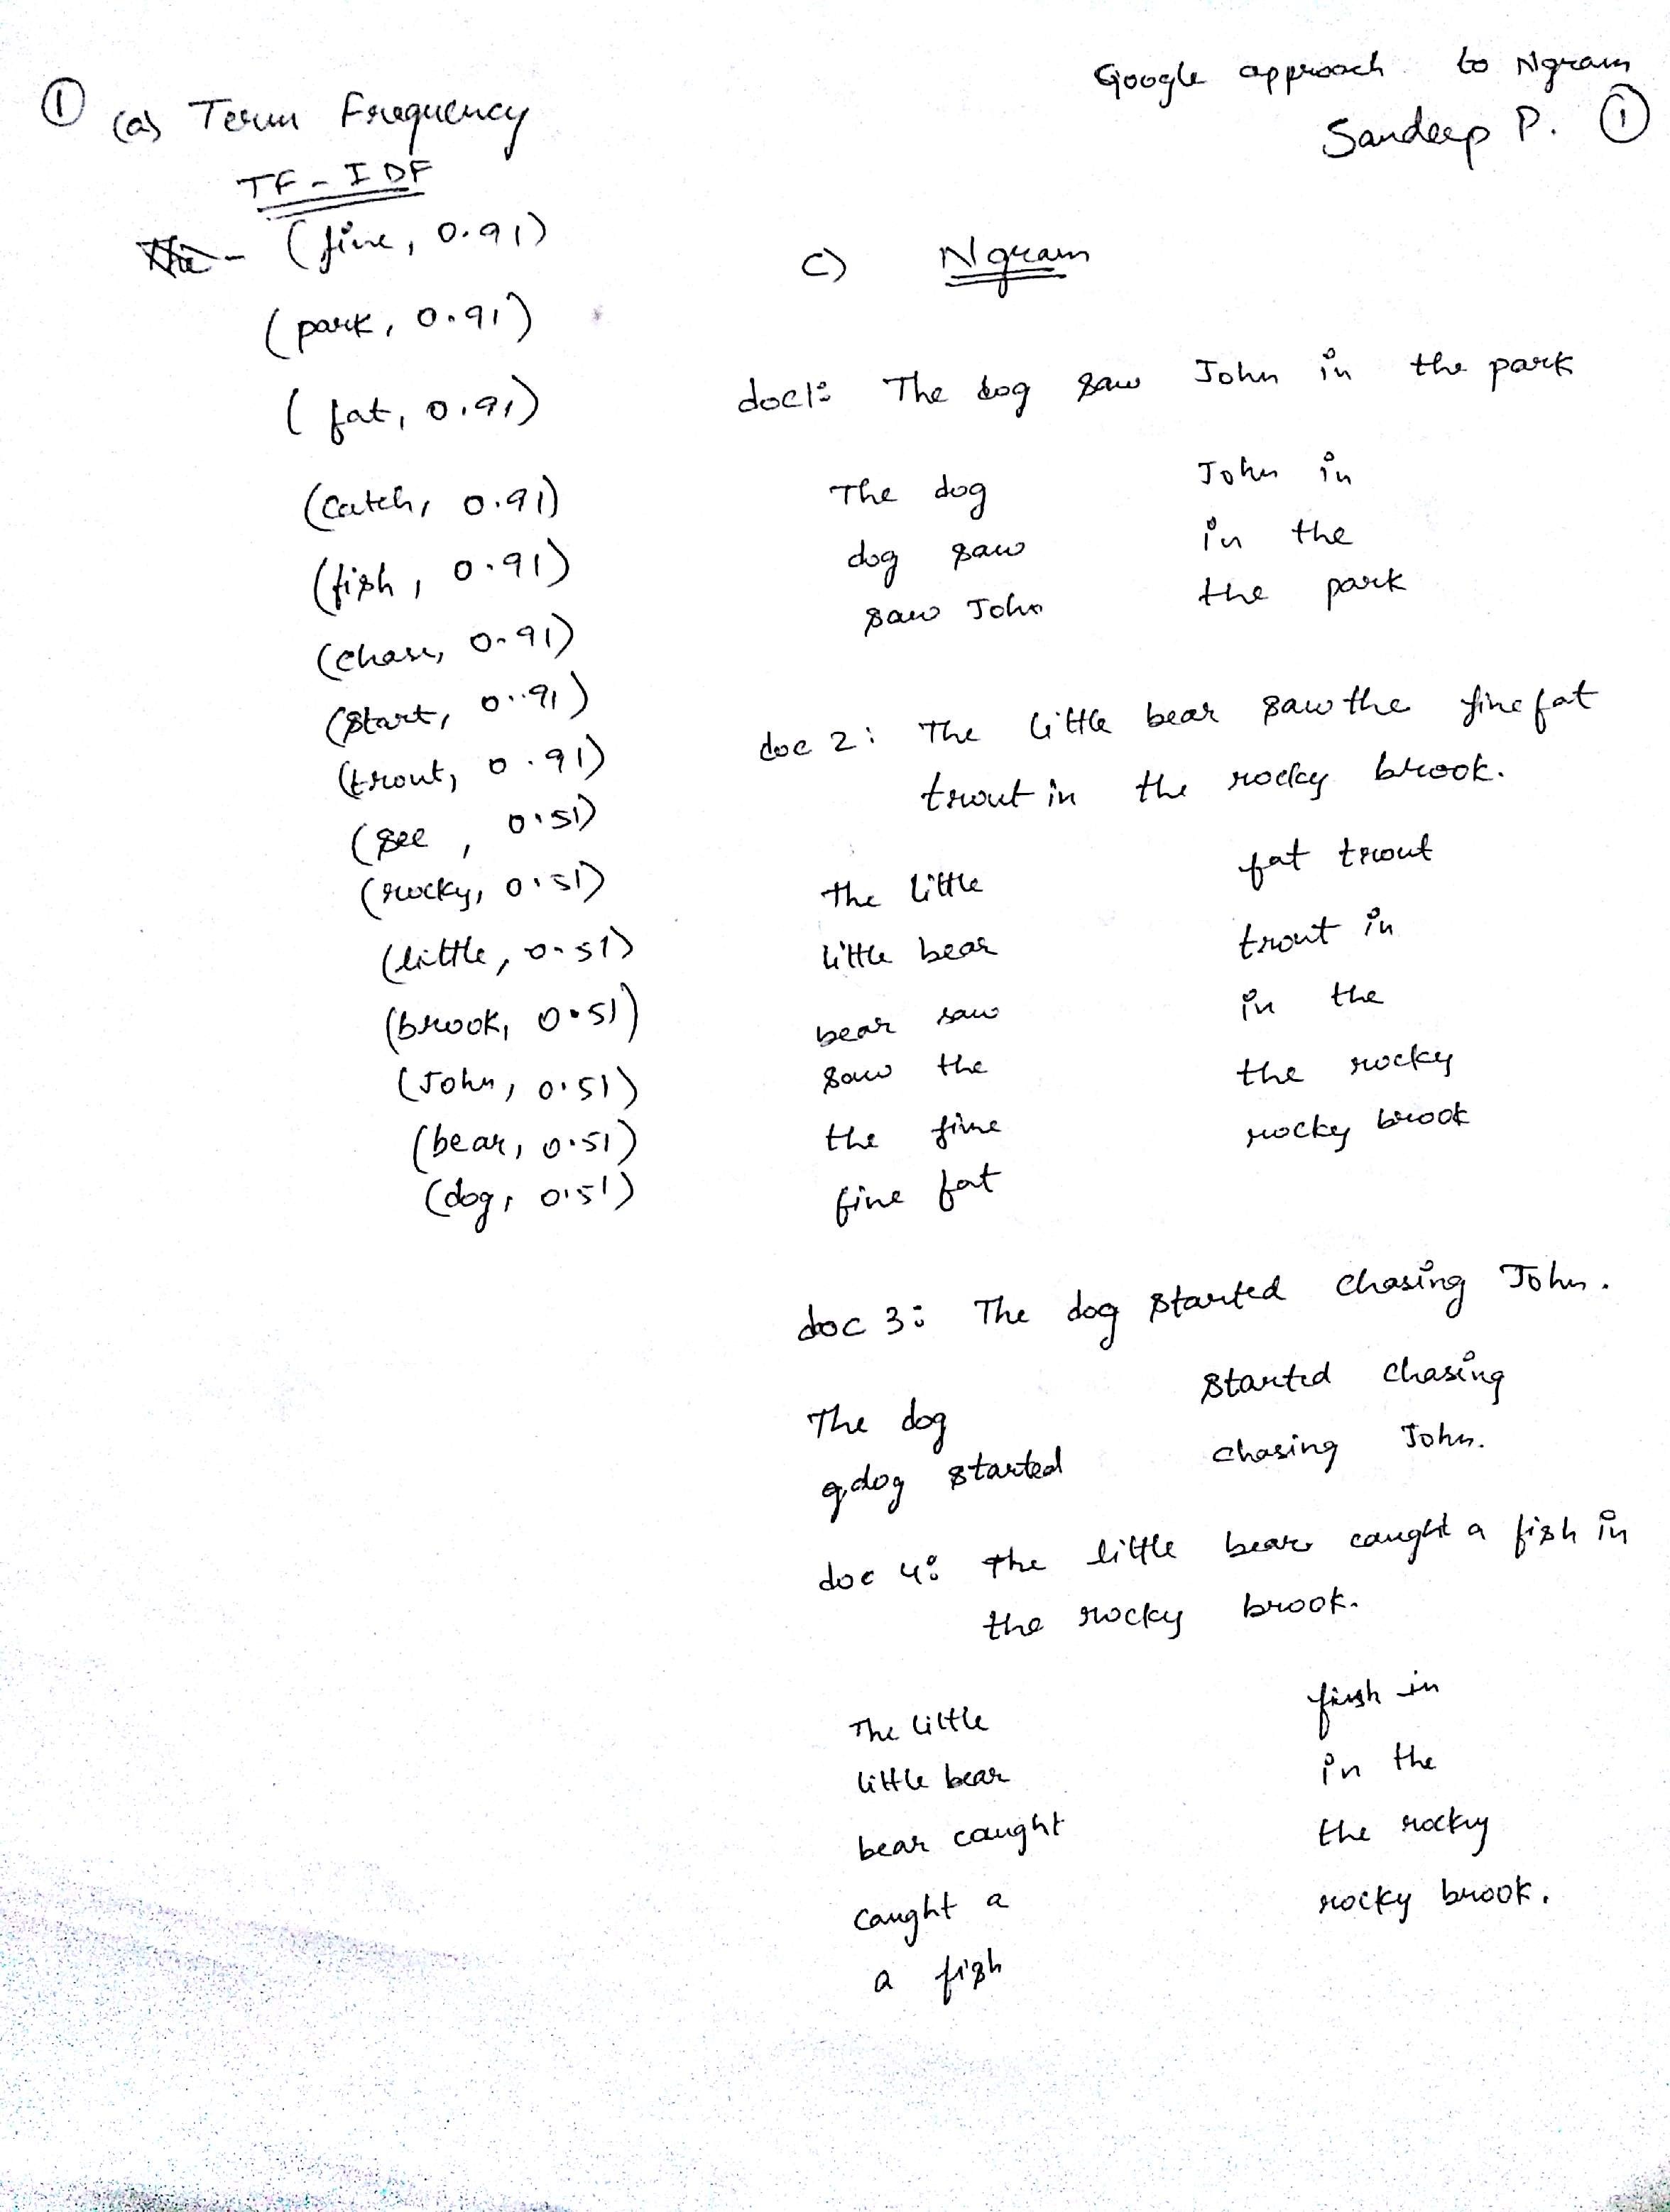 Google approach to Ngram
Sandeep P. ①
① (a) Term Frequency
TF-IDF
(fine, 0.91)
(park, 0.91)
(fat, 0.91)
(catch, 0.91)
(fish, 0.91)
(chase, 0.91)
(start, 0..91)
(trout, 0.91)
(see, 0.51)
(rocky, 0.51)
(little, 0.51)
(brook, 0.51)
(John, 0.51)
(bear, 0.51)
(dog, 0.51)
c) Ngram
doc1: The dog saw John in the park
The dog
dog saw
saw John
John in
in the
the park
doc 2: The little bear saw the fine fat
trout in the rocky brook.
the little
little bear
bear saw
saw the
the fine
fine fat
fat trout
trout in
in the
the rocky
rocky brook
doc 3: The dog started chasing John.
The dog
dog started
started chasing
chasing John.
doc 4: The little bear caught a fish in
the rocky brook.
The little
little bear
bear caught
caught a
a fish
fish in
in the
the rocky
rocky brook.